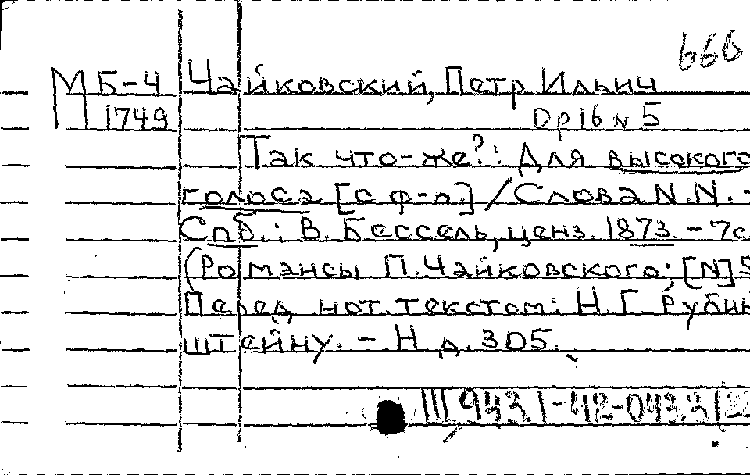 666
МБ-4 Чайковский, Петр Ильич
П 1749
Op 16 N 5
Так что-же?: Для высокого
голоса [с ф-п.] / Слова N.N. -
Спб.: В. Бессель, ценз. 1873. - 7с
(Романсы П. Чайковского; [N] 5
Перед нот. текстом: Н.Г. Рубин
штейну. - Н. д. 305.
III 943.1-42-043.3